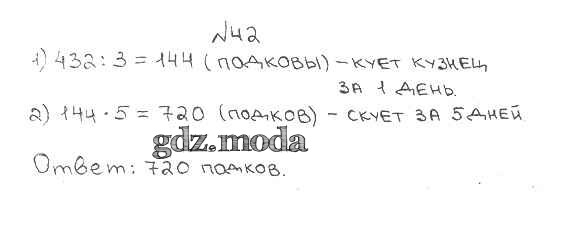 №42
1) 432 : 3 = 144 (подковы) – кует кузнец
за 1 день.
2) 144 · 5 = 720 (подков) – скует за 5 дней
gdz.moda
Ответ: 720 подков.